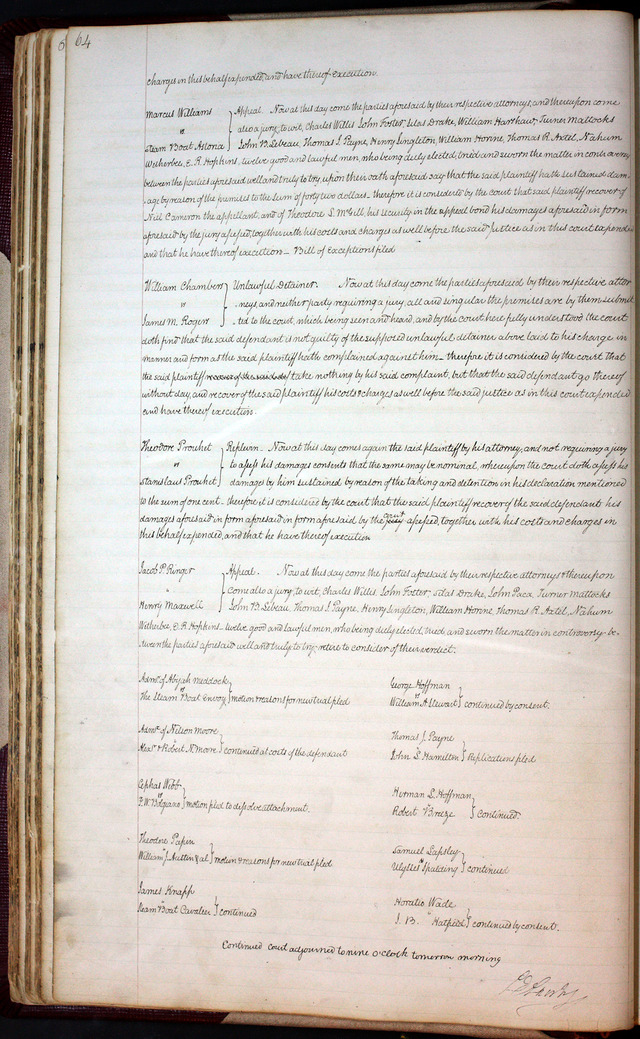 64
charges in this behalf expended, and have thereof execution.
Marcus Williams } Appeal. Now at this day come the parties aforesaid by their respective attorneys, and thereupon come
" also a jury, to wit, Charles Willis, John Foster, Silas Drake, William Harthaw, Turner Mattocks
Steam Boat Astona } John B. Lebeau, Thomas J. Payne, Henry Singleton, William Horine, Thomas R. Axtel, Nahum
Witherbee, E. R. Hopkins, twelve good and lawful men, who being duly elected, tried and sworn the matter in controversy
between the parties aforesaid well and truly to try, upon their oath aforesaid say that the said plaintiff hath sustained dam
age by reason of the premises to the sum of forty two dollars. therefore it is considered by the court that said plaintiff recover of
Neil Cameron the appellant, and of Theodore L. McGill, his security in the appeal bond his damages aforesaid in form
aforesaid by the jury assessed, together with his costs and charges as well before the said Justice as in this court expended
and that he have thereof execution. Bill of exceptions filed
William Chambers } Unlawful Detainer. Now at this day come the parties aforesaid by their respective attor
" neys, and neither party requiring a jury, all and singular the premises are by them submit
James M. Roger } ted to the court, which being seen and heard, and by the court here fully understood the court
doth find that the said defendant is not guilty of the supposed unlawful detainer above laid to his charge in
manner and form as the said plaintiff hath complained against him. therefore it is considered by the court that
the said plaintiff recover of the said def take nothing by his said complaint, but that the said defendant go thereof
without day, and recover of the said plaintiff his costs & charges as well before the said justice as in this court expended
and have thereof execution.
Theodore Prouhet } Replevin. Now at this day comes again the said plaintiff by his attorney, and not requiring a jury
" to assess his damages consents that the same may be nominal, whereupon the court doth assess his
Stanislaus Prouhet } damages by him sustained by reason of the taking and detention in his declaration mentioned
to the sum of one cent. therefore it is considered by the court that the said plaintiff recover of the said defendant his
damages aforesaid in form aforesaid in form aforesaid by the jury court assessed, together with his costs and charges in
this behalf expended, and that he have thereof execution
Jacob P. Ringer } Appeal. Now at this day come the parties aforesaid by their respective attorneys & thereupon
" come also a jury, to wit, Charles Willis, John Foster, Silas Drake, John Paca, Turner Mattocks
Henry Maxwell } John B. Lebeau, Thomas J. Payne, Henry Singleton, William Horine, Thomas R. Axtel, Nahum
Witherbee, E. R. Hopkins twelve good and lawful men, who being duly elected, tried and sworn the matter in controversy be-
tween the parties aforesaid well and truly to try. retire to consider of their verdict.
Admr. of Abijah Muddock
"
The Steam Boat Envoy } motion & reasons for new trial filed
George Hoffman
"
William A. Stewart } continued by consent.
Admr. of Nelson Moore
"
Alexr. & Robert N. Moore } continued at costs of the defendant
Thomas J. Payne
"
John S. Hamilton } Replications filed
Cephas Webb
"
F. W. Bolgiano } motion filed to dissolve attachment.
Herman L. Hoffman
"
Robert Breeze } Continued.
Theodore Papin
"
William J. Austin & al } motion & reasons for new trial filed
Samuel Lapsley
"
Ulysses Spalding } continued
James Knapp
"
Steam Boat Cavalier } continued
Horatio Wade
"
J. B. Hatfield } continued by consent.
Continued court adjourned to nine o'clock tomorrow morning